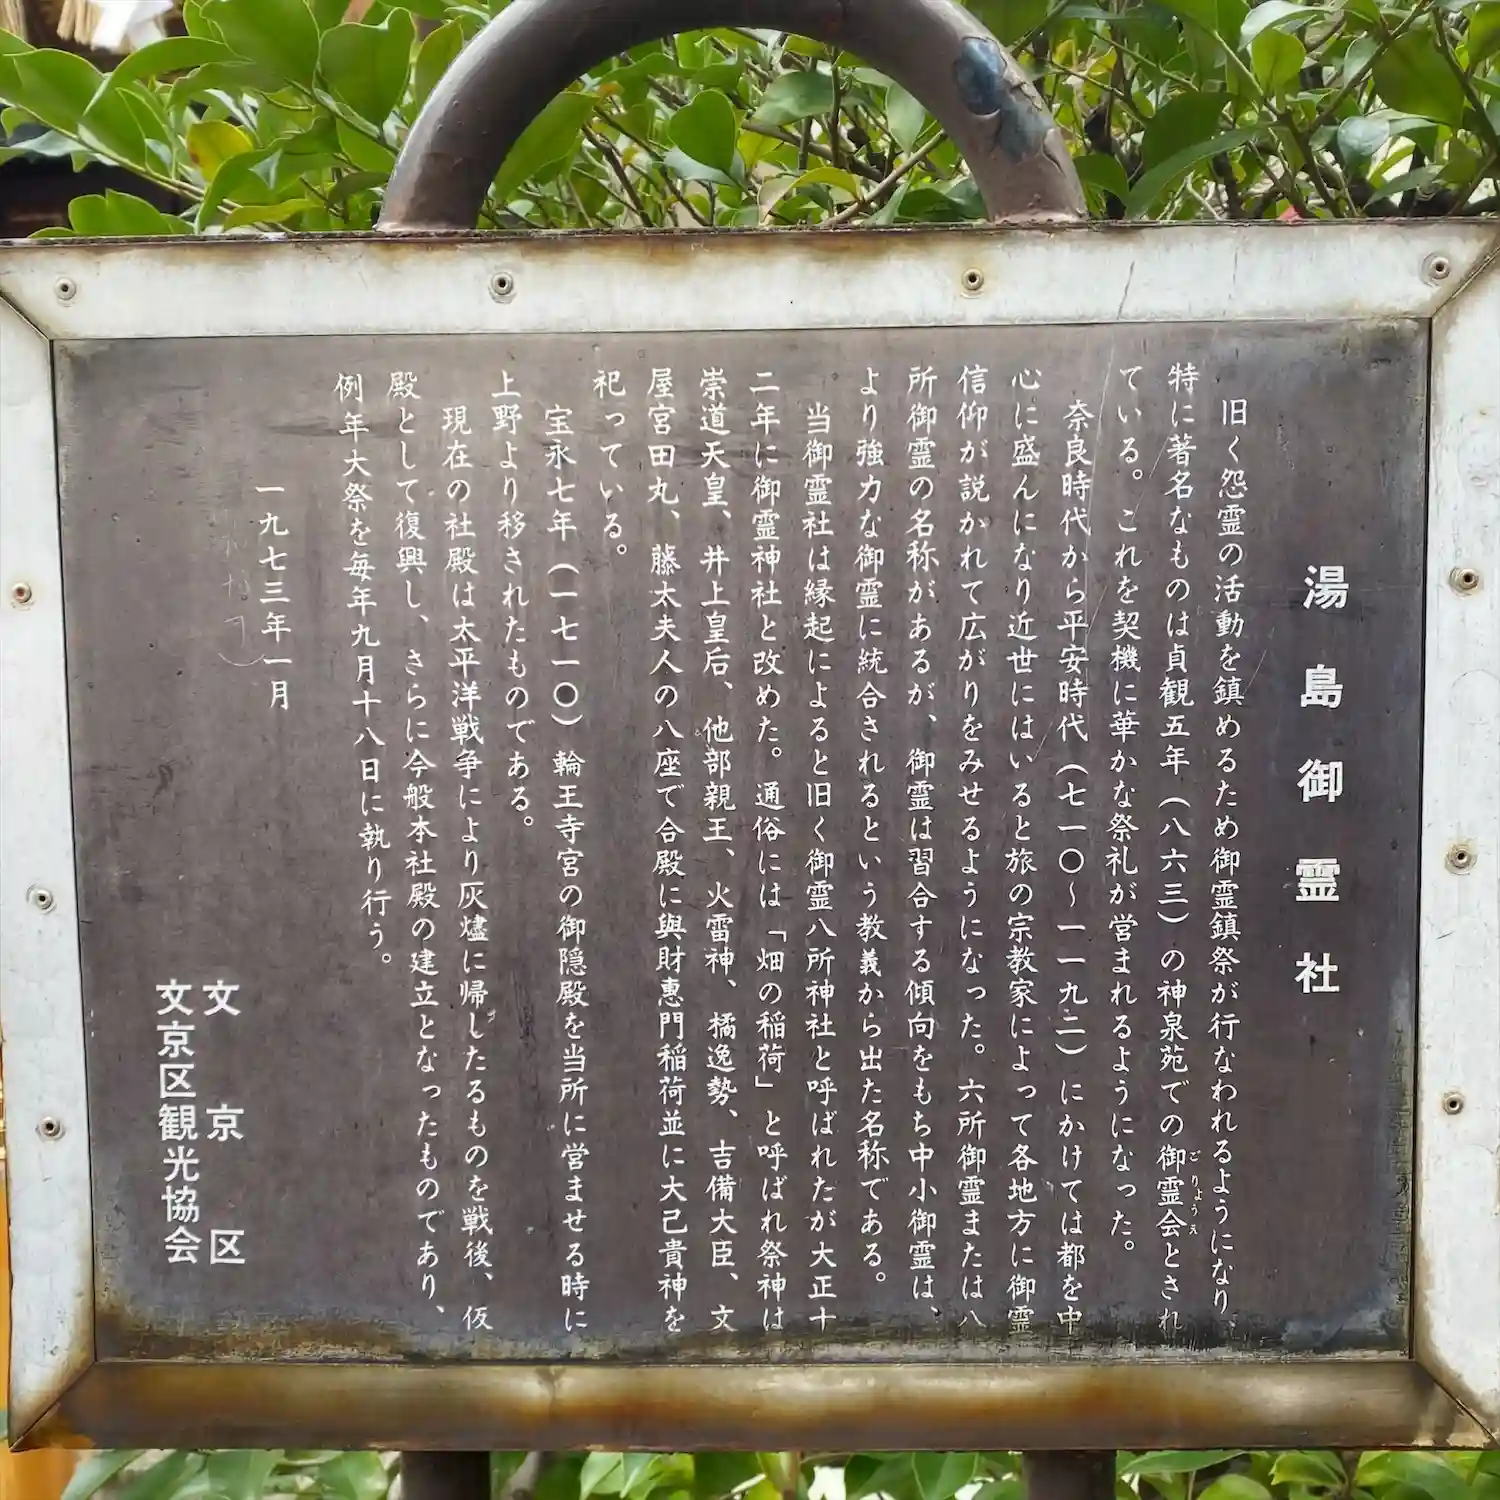 湯島御霊社
旧く怨霊の活動を鎮めるため御霊鎮祭が行なわれるようになり、
特に著名なものは貞観五年（八六三）の神泉苑での御霊会とされ
ごりょうえ
ている。これを契機に華かな祭礼が営まれるようになった。
奈良時代から平安時代（七一〇～一一九二）にかけては都を中
心に盛んになり近世にはいると旅の宗教家によって各地方に御霊
信仰が説かれて広がりをみせるようになった。六所御霊または八
所御霊の名称があるが、御霊は習合する傾向をもち中小御霊は、
より強力な御霊に統合されるという教義から出た名称である。
当御霊社は縁起によると旧く御霊八所神社と呼ばれたが大正十
二年に御霊神社と改めた。通俗には「畑の稲荷」と呼ばれ祭神は
崇道天皇、井上皇后、他部親王、火雷神、橘逸勢、吉備大臣、文
屋宮田丸、藤太夫人の八座で合殿に與財惠門稲荷並に大己貴神を
祀っている。
宝永七年（一七一〇）輪王寺宮の御隠殿を当所に営ませる時に
上野より移されたものである。
現在の社殿は太平洋戦争により灰燼に帰したるものを戦後、仮
殿として復興し、さらに今般本社殿の建立となったものであり、
例年大祭を毎年九月十八日に執り行う。
一九七三年一月
文京区
文京区観光協会